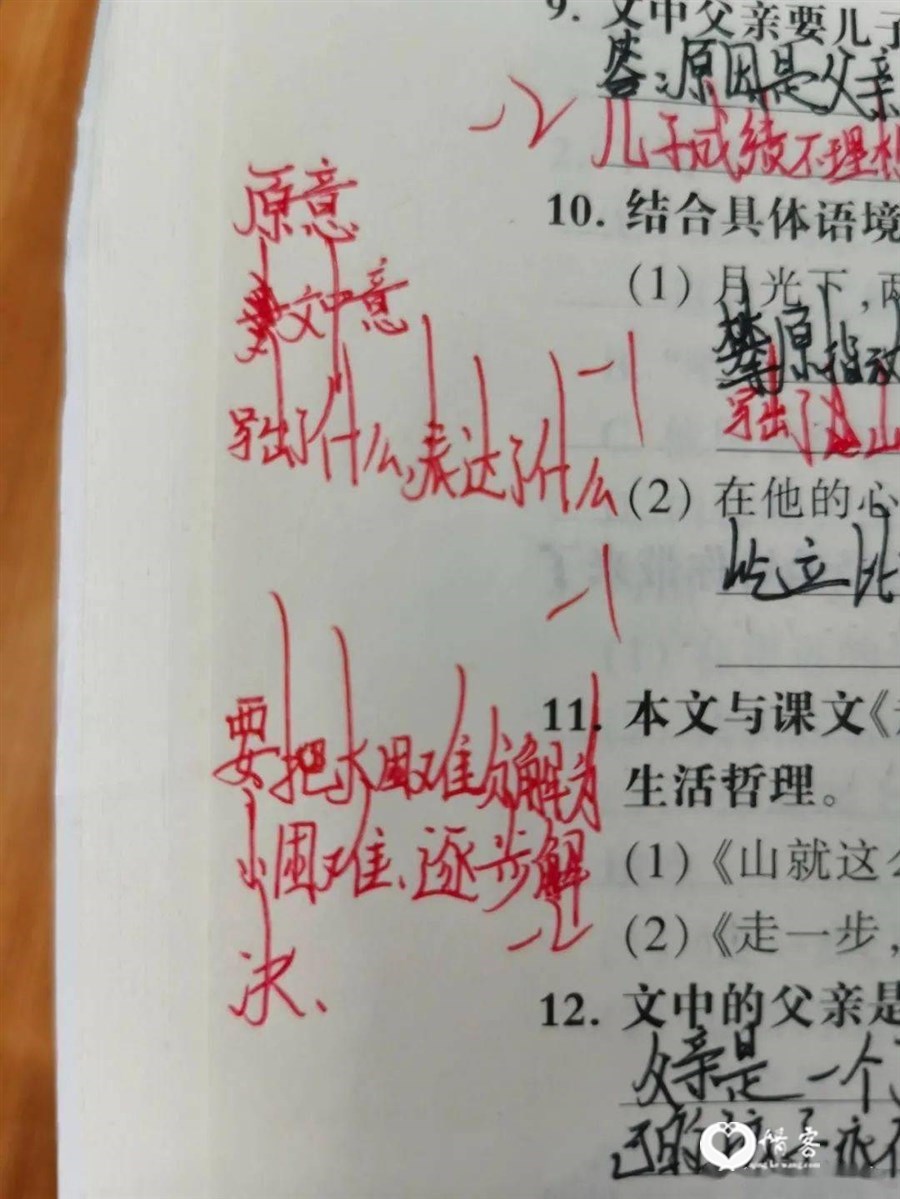 9. 文中父亲要儿子
答:原因是父亲
-2 儿子成绩不理想
原意
文中意
写出了什么,表达了什么
-1
10. 结合具体语境
(1) 月光下,两
攀原指
写出了
(2) 在他的心
屹立比
-1
11. 本文与课文《走
生活哲理。
要把大困难分解为
小困难、逐步解
决、
(1)《山就这么
(2)《走一步,
-2
12. 文中的父亲是
父亲是一个
己的孩子永不
惜客